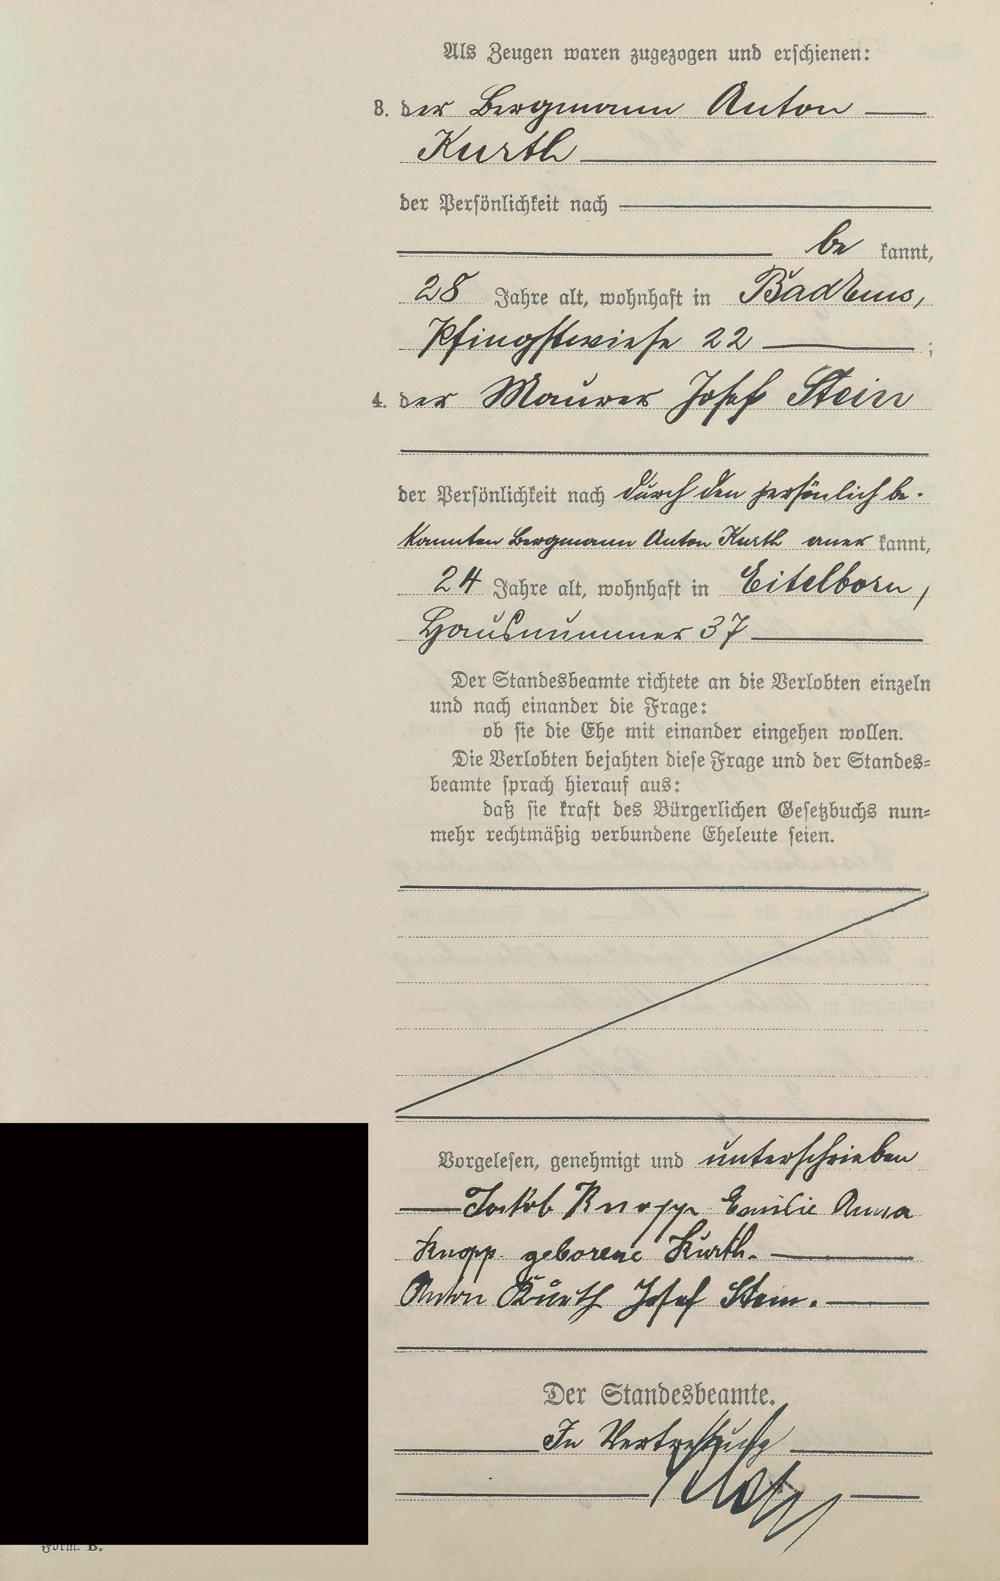 Als Zeugen waren zugezogen und erschienen:
3. der Bergmann Anton
Kurth
der Persönlichkeit nach
be kannt,
28 Jahre alt, wohnhaft in Bad Ems,
Pfingstwiese 22 ;
4. der Maurer Josef Stein
der Persönlichkeit nach durch den persönlich be-
kannten Bergmann Anton Kurth aner kannt,
24 Jahre alt, wohnhaft in Eitelborn,
Hausnummer 37
Der Standesbeamte richtete an die Verlobten einzeln
und nach einander die Frage:
ob sie die Ehe mit einander eingehen wollen.
Die Verlobten bejahten diese Frage und der Standes=
beamte sprach hierauf aus:
daß sie kraft des Bürgerlichen Gesetzbuchs nun=
mehr rechtmäßig verbundene Eheleute seien.
Vorgelesen, genehmigt und unterschrieben
Jakob Knopp Emilie Anna
Knopp geborene Kurth.
Anton Kurth Josef Stein.
Der Standesbeamte.
In Vertretung
Form. B.